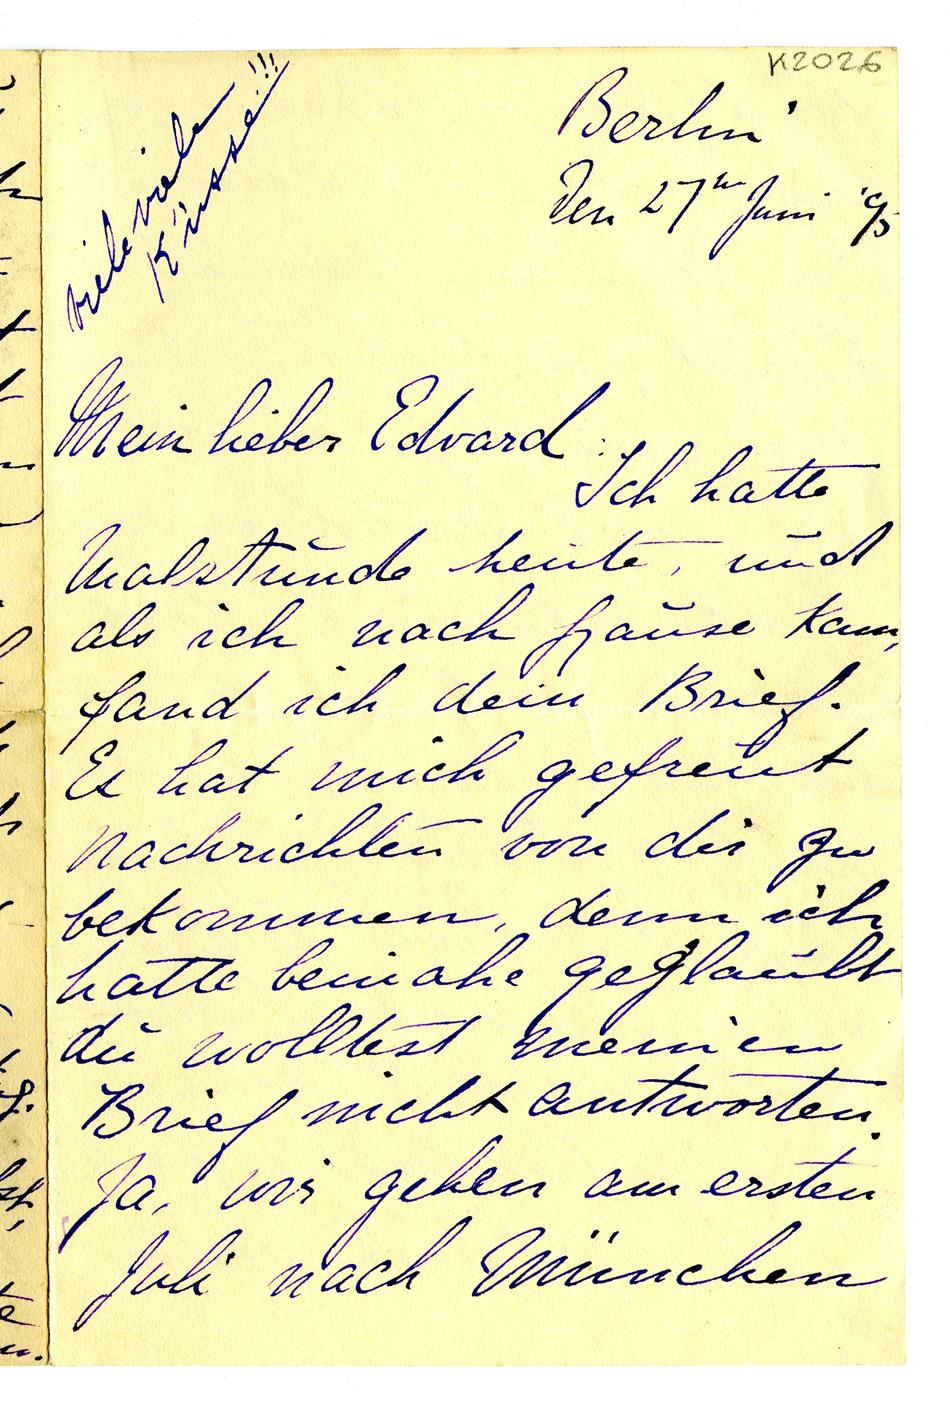 K2026
viele viele
Küsse!!!
Berlin
Den 27ten Juni '05
Mein lieber Edvard:
Ich hatte
Malstunde heute, und
als ich nach Hause kam,
fand ich dein Brief.
Es hat mich gefreut
Nachrichten von dir zu
bekommen, denn ich
hatte beinahe geglaubt
du wolltest meinen
Brief nicht antworten.
Ja, wir gehen am ersten
Juli nach München